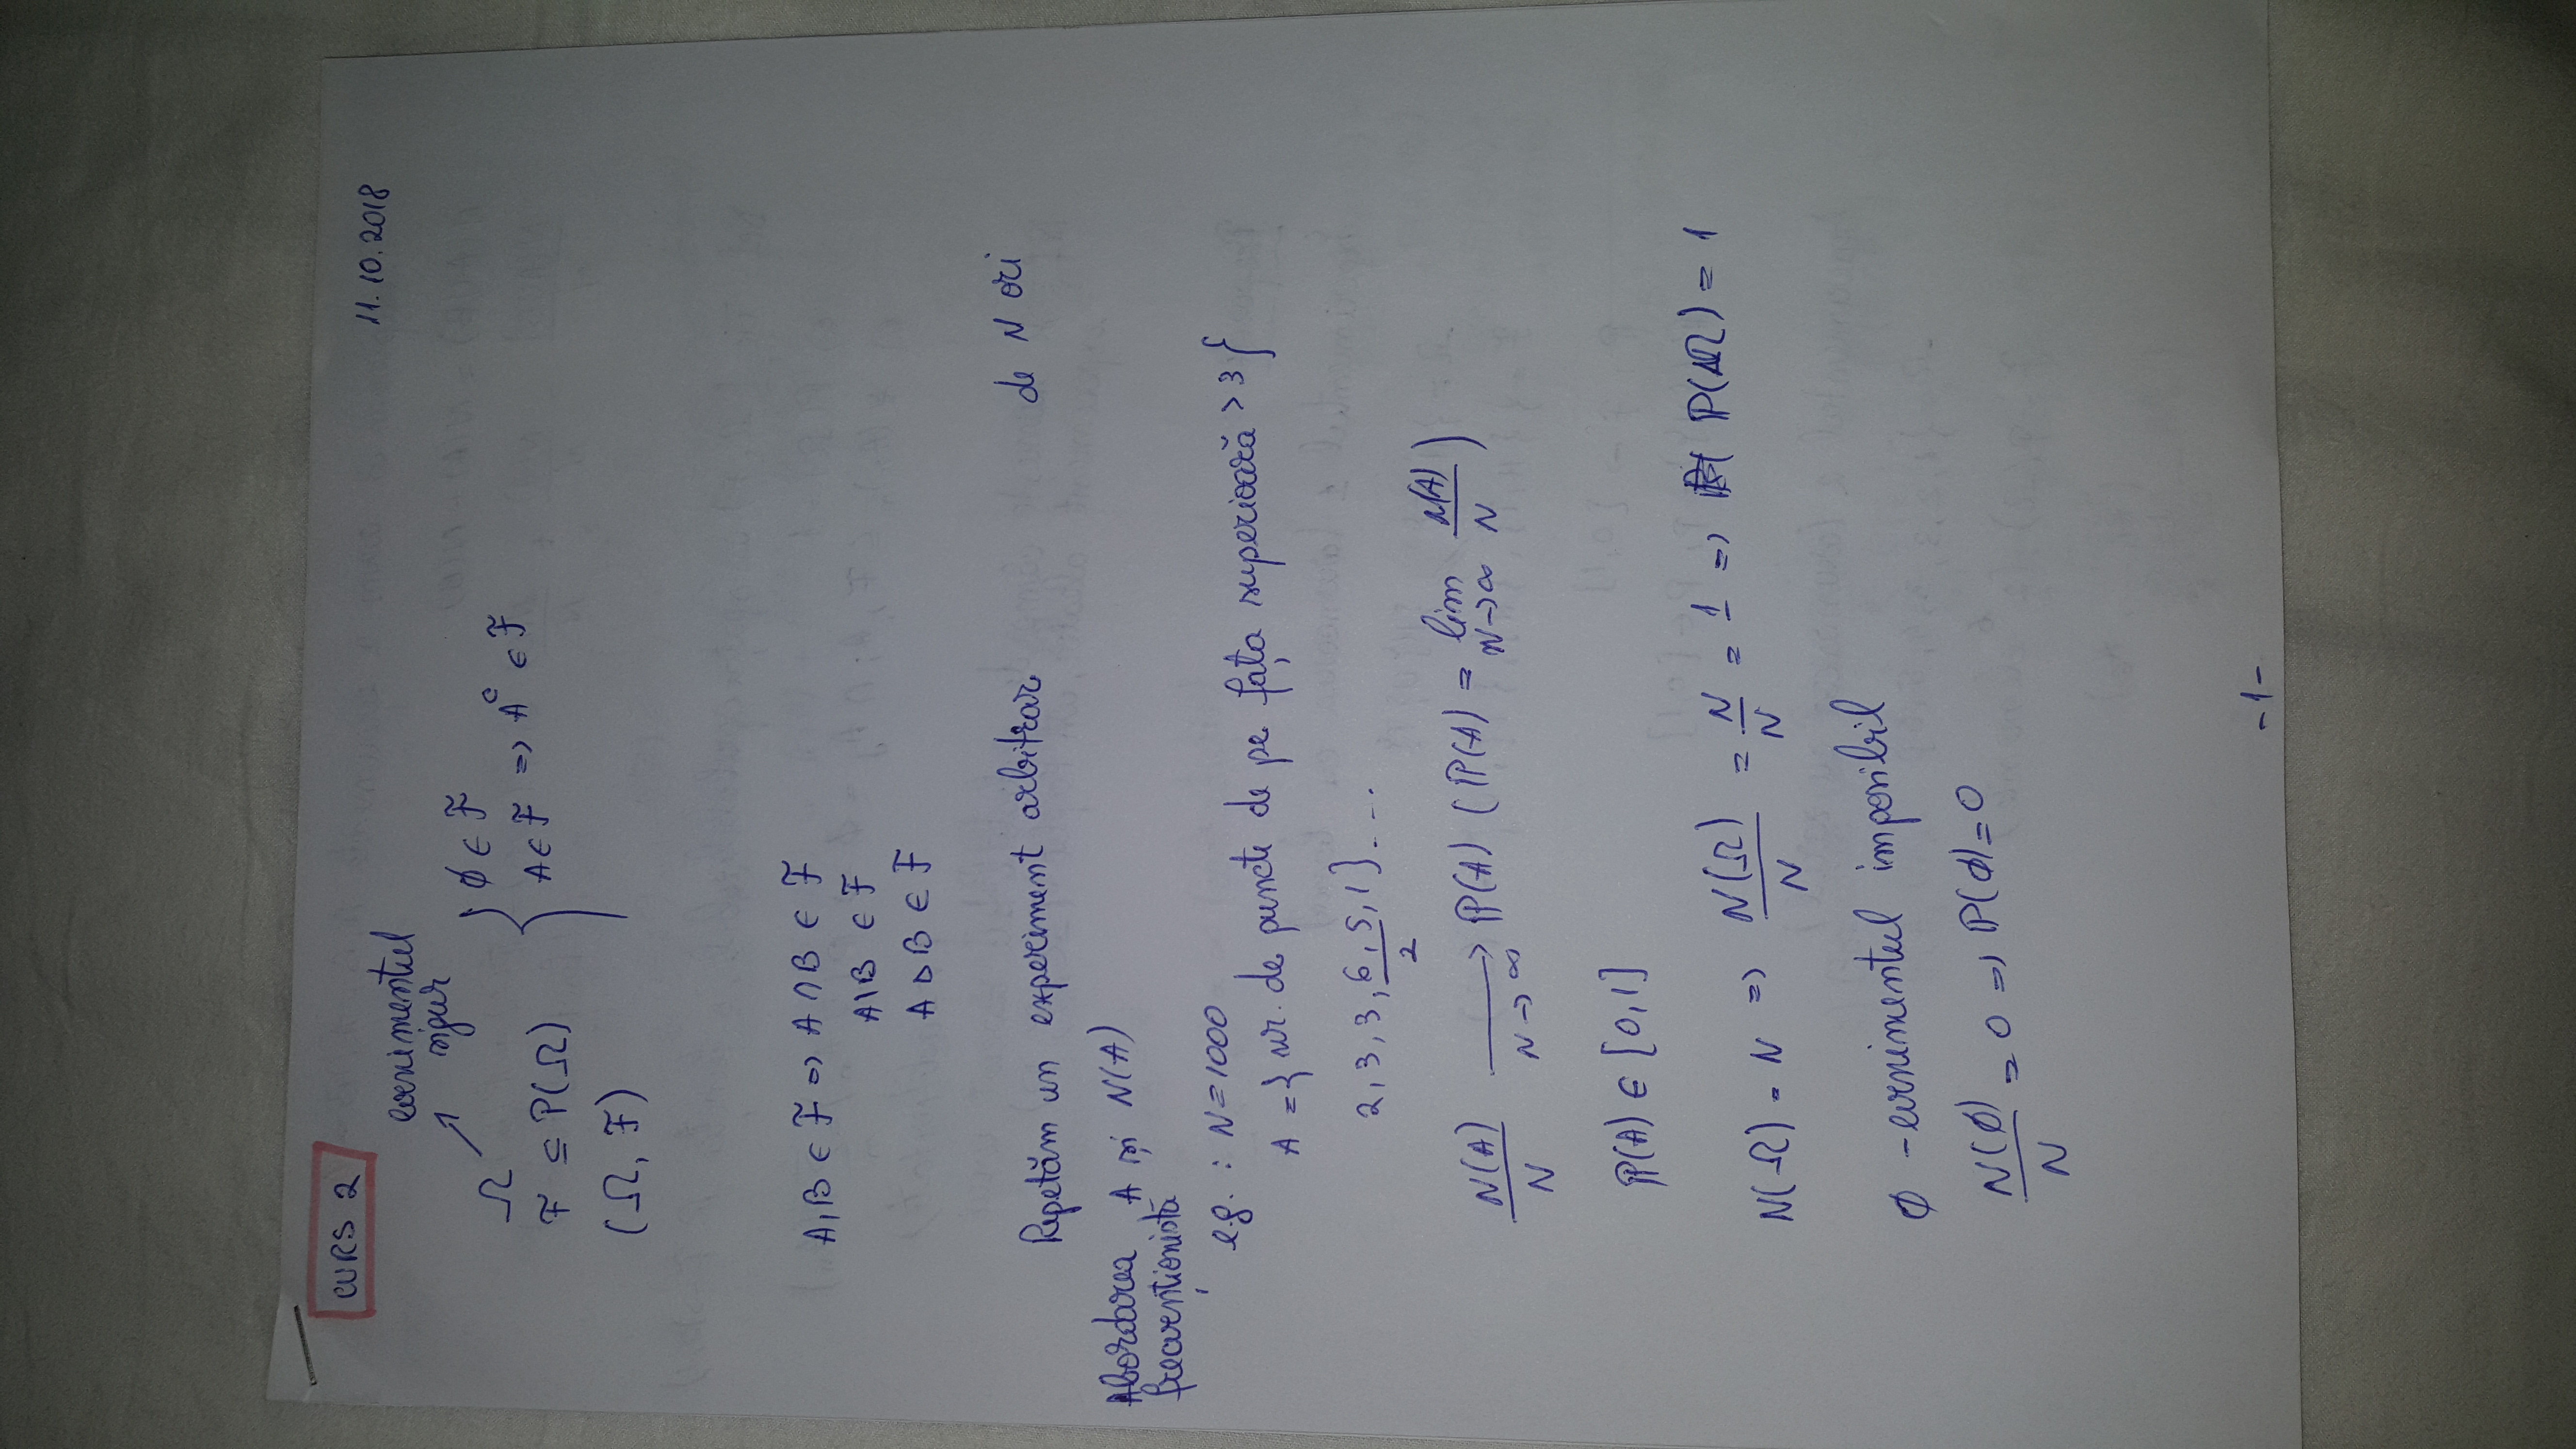 CURS 2
11.10.2018
evenimentul
sigur
Ω
F ⊆ P(Ω)
(Ω, F)
{ ∅ ∈ F
A ∈ F => Aᶜ ∈ F
A, B ∈ F => A ∩ B ∈ F
A \ B ∈ F
A Δ B ∈ F
Repetăm un experiment arbitrar de N ori
Abordarea
frecvenționistă
A și N(A)
e.g. : N = 1000
A = { nr. de puncte de pe fața superioară > 3 }
2, 3, 3, 6, 5, 1 } ....
2
N(A)/N ⟶ (N → ∞) ℙ(A) ( ℙ(A) = lim (N → ∞) N(A)/N )
ℙ(A) ∈ [0, 1]
N(Ω) = N => N(Ω)/N = N/N = 1 => ℙ(Ω) = 1
∅ - evenimentul imposibil
N(∅)/N = 0 => ℙ(∅) = 0
- 1 -